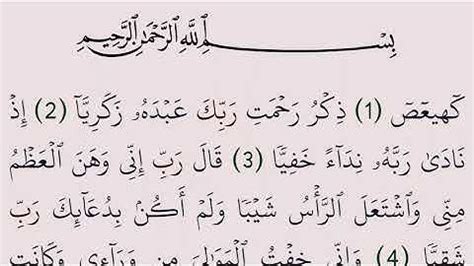 بِسْمِ ٱللَّهِ ٱلرَّحْمَٰنِ ٱلرَّحِيمِ
كٓهيعٓصٓ (1) ذِكْرُ رَحْمَتِ رَبِّكَ عَبْدَهُۥ زَكَرِيَّآ (2) إِذْ
نَادَىٰ رَبَّهُۥ نِدَآءً خَفِيًّا (3) قَالَ رَبِّ إِنِّي وَهَنَ ٱلْعَظْمُ
مِنِّي وَٱشْتَعَلَ ٱلرَّأْسُ شَيْبًا وَلَمْ أَكُنۢ بِدُعَآئِكَ رَبِّ
شَقِيًّا (4) وَإِنِّي خِفْتُ ٱلْمَوَٰلِيَ مِن وَرَآءِي وَكَانَتِ